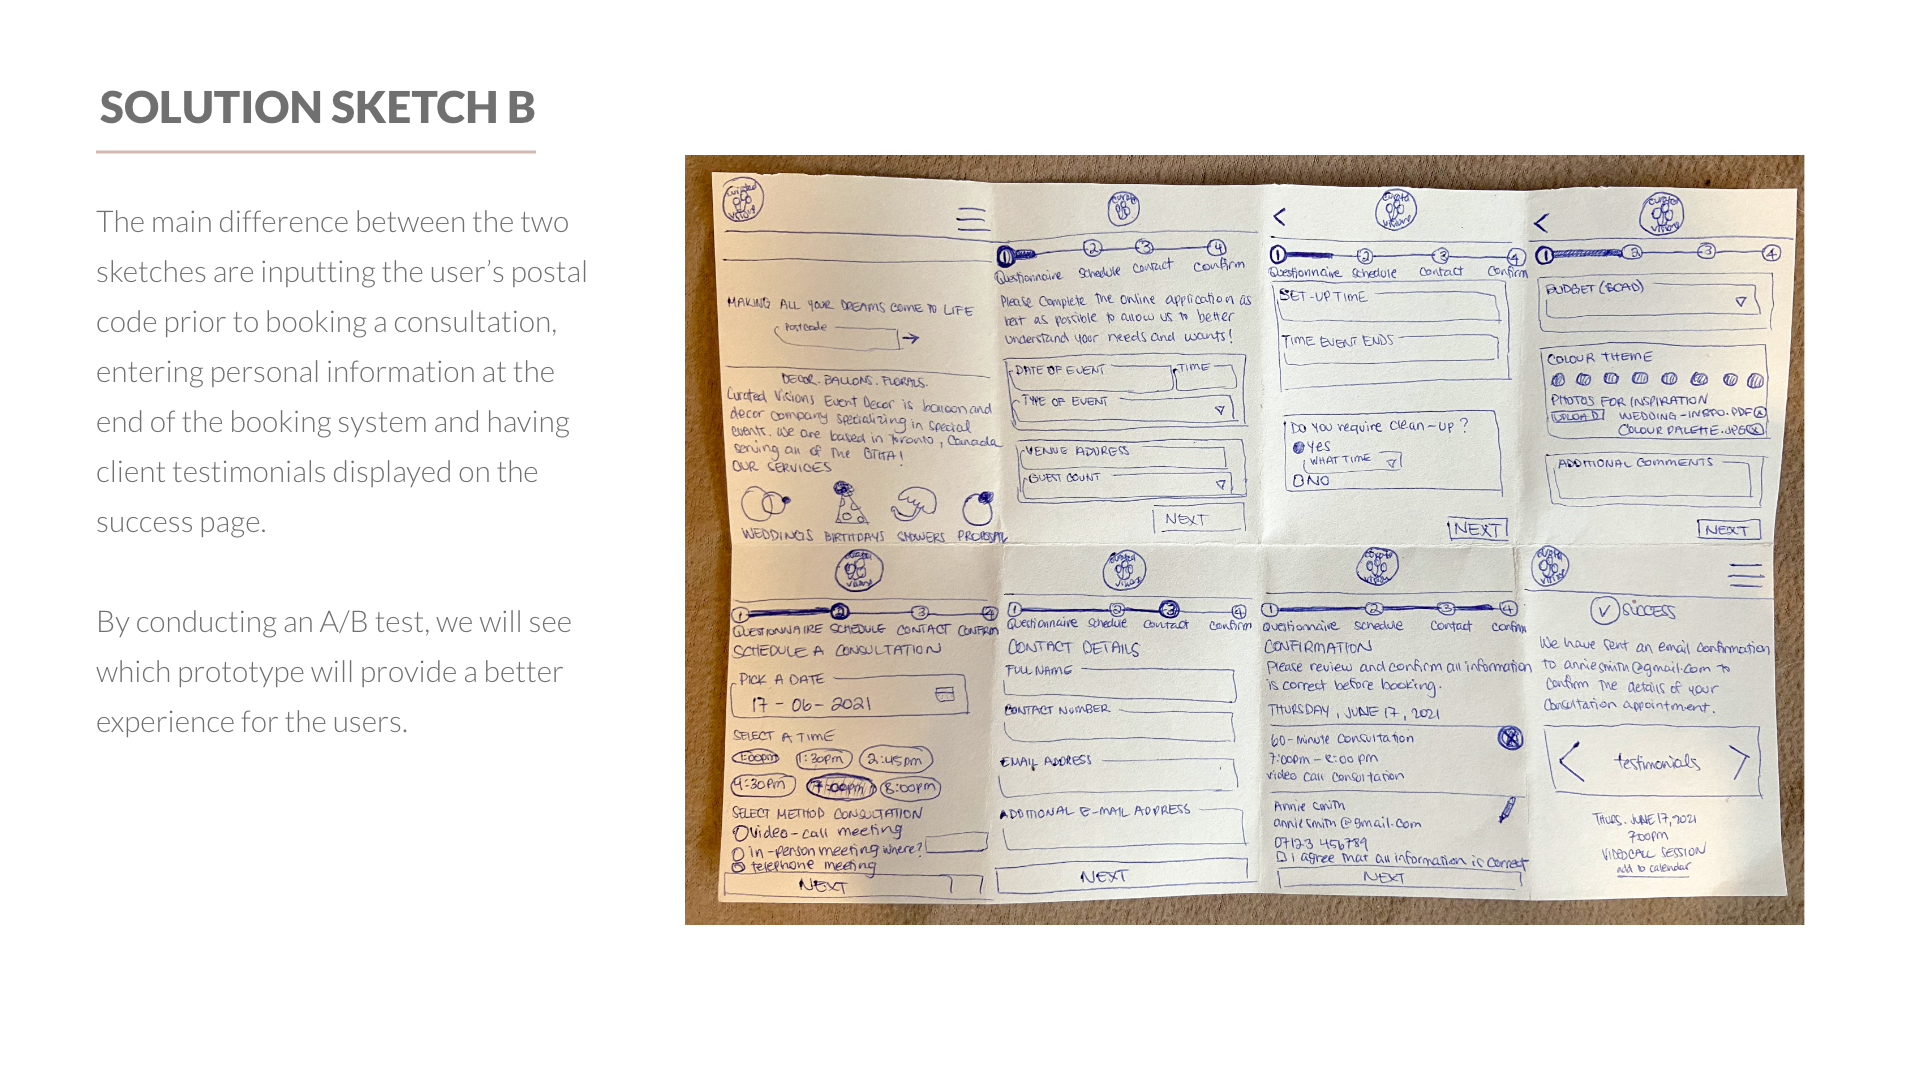 SOLUTION SKETCH B
The main difference between the two
sketches are inputting the user's postal
code prior to booking a consultation,
entering personal information at the
end of the booking system and having
client testimonials displayed on the
success page.
By conducting an A/B test, we will see
which prototype will provide a better
experience for the users.
curated
visions
MAKING ALL YOUR DREAMS COME TO LIFE
Postcode
DECOR. BALLONS. FLORALS.
Curated Visions Event Decor is balloon and
decor company specializing in special
events. We are based in Toronto, Canada
serving all of the GTHA!
OUR SERVICES
WEDDINGS BIRTHDAYS SHOWERS PROPOSAL
curated
1 2 3 4
Questionnaire Schedule Contact Confirm
Please complete the online application as
best as possible to allow us to better
understand your needs and wants!
DATE OF EVENT TIME
TYPE OF EVENT
VENUE ADDRESS
GUEST COUNT
NEXT
<
curated
visions
1 2 3 4
Questionnaire Schedule Contact Confirm
SET-UP TIME
TIME EVENT ENDS
Do you require clean-up?
Yes
WHAT TIME
NO
NEXT
<
curated
visions
1 2 3 4
BUDGET ($CAD)
COLOUR THEME
PHOTOS FOR INSPIRATION
UPLOAD WEDDING-INSPO.PDF X
COLOUR PALETTE.JPG X
ADDITIONAL COMMENTS
NEXT
curated
visions
1 2 3 4
QUESTIONNAIRE SCHEDULE CONTACT CONFIRM
SCHEDULE A CONSULTATION
PICK A DATE
17-06-2021
SELECT A TIME
1:00pm 1:30pm 2:45pm
4:30pm 7:00pm 8:00pm
SELECT METHOD CONSULTATION
video-call meeting
in-person meeting where?
telephone meeting
NEXT
curated
visions
1 2 3 4
Questionnaire Schedule Contact Confirm
CONTACT DETAILS
FULL NAME
CONTACT NUMBER
EMAIL ADDRESS
ADDITIONAL E-MAIL ADDRESS
NEXT
curated
visions
1 2 3 4
Questionnaire Schedule Contact Confirm
CONFIRMATION
Please review and confirm all information
is correct before booking.
THURSDAY, JUNE 17, 2021
60-minute consultation
7:00pm - 8:00pm
video call consultation
Annie Smith
anniesmith@gmail.com
07123 456789
i agree that all information is correct
NEXT
curated
visions
SUCCESS
We have sent an email confirmation
to anniesmith@gmail.com to
confirm the details of your
consultation appointment.
< testimonials >
THURS. JUNE 17, 2021
7:00pm
VIDEO CALL SESSION
add to calendar